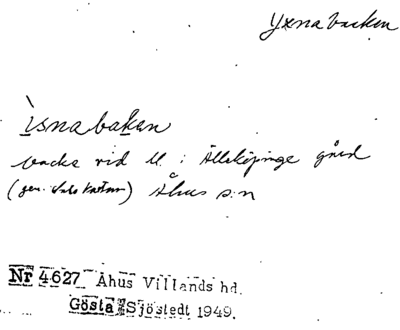 Yxnabacken
ìsnabakan
backe vid U. i Älleköpinge gård
(gen. Åhus s:n
Nr 4627 Åhus Villands hd.
Gösta Sjöstedt 1949.